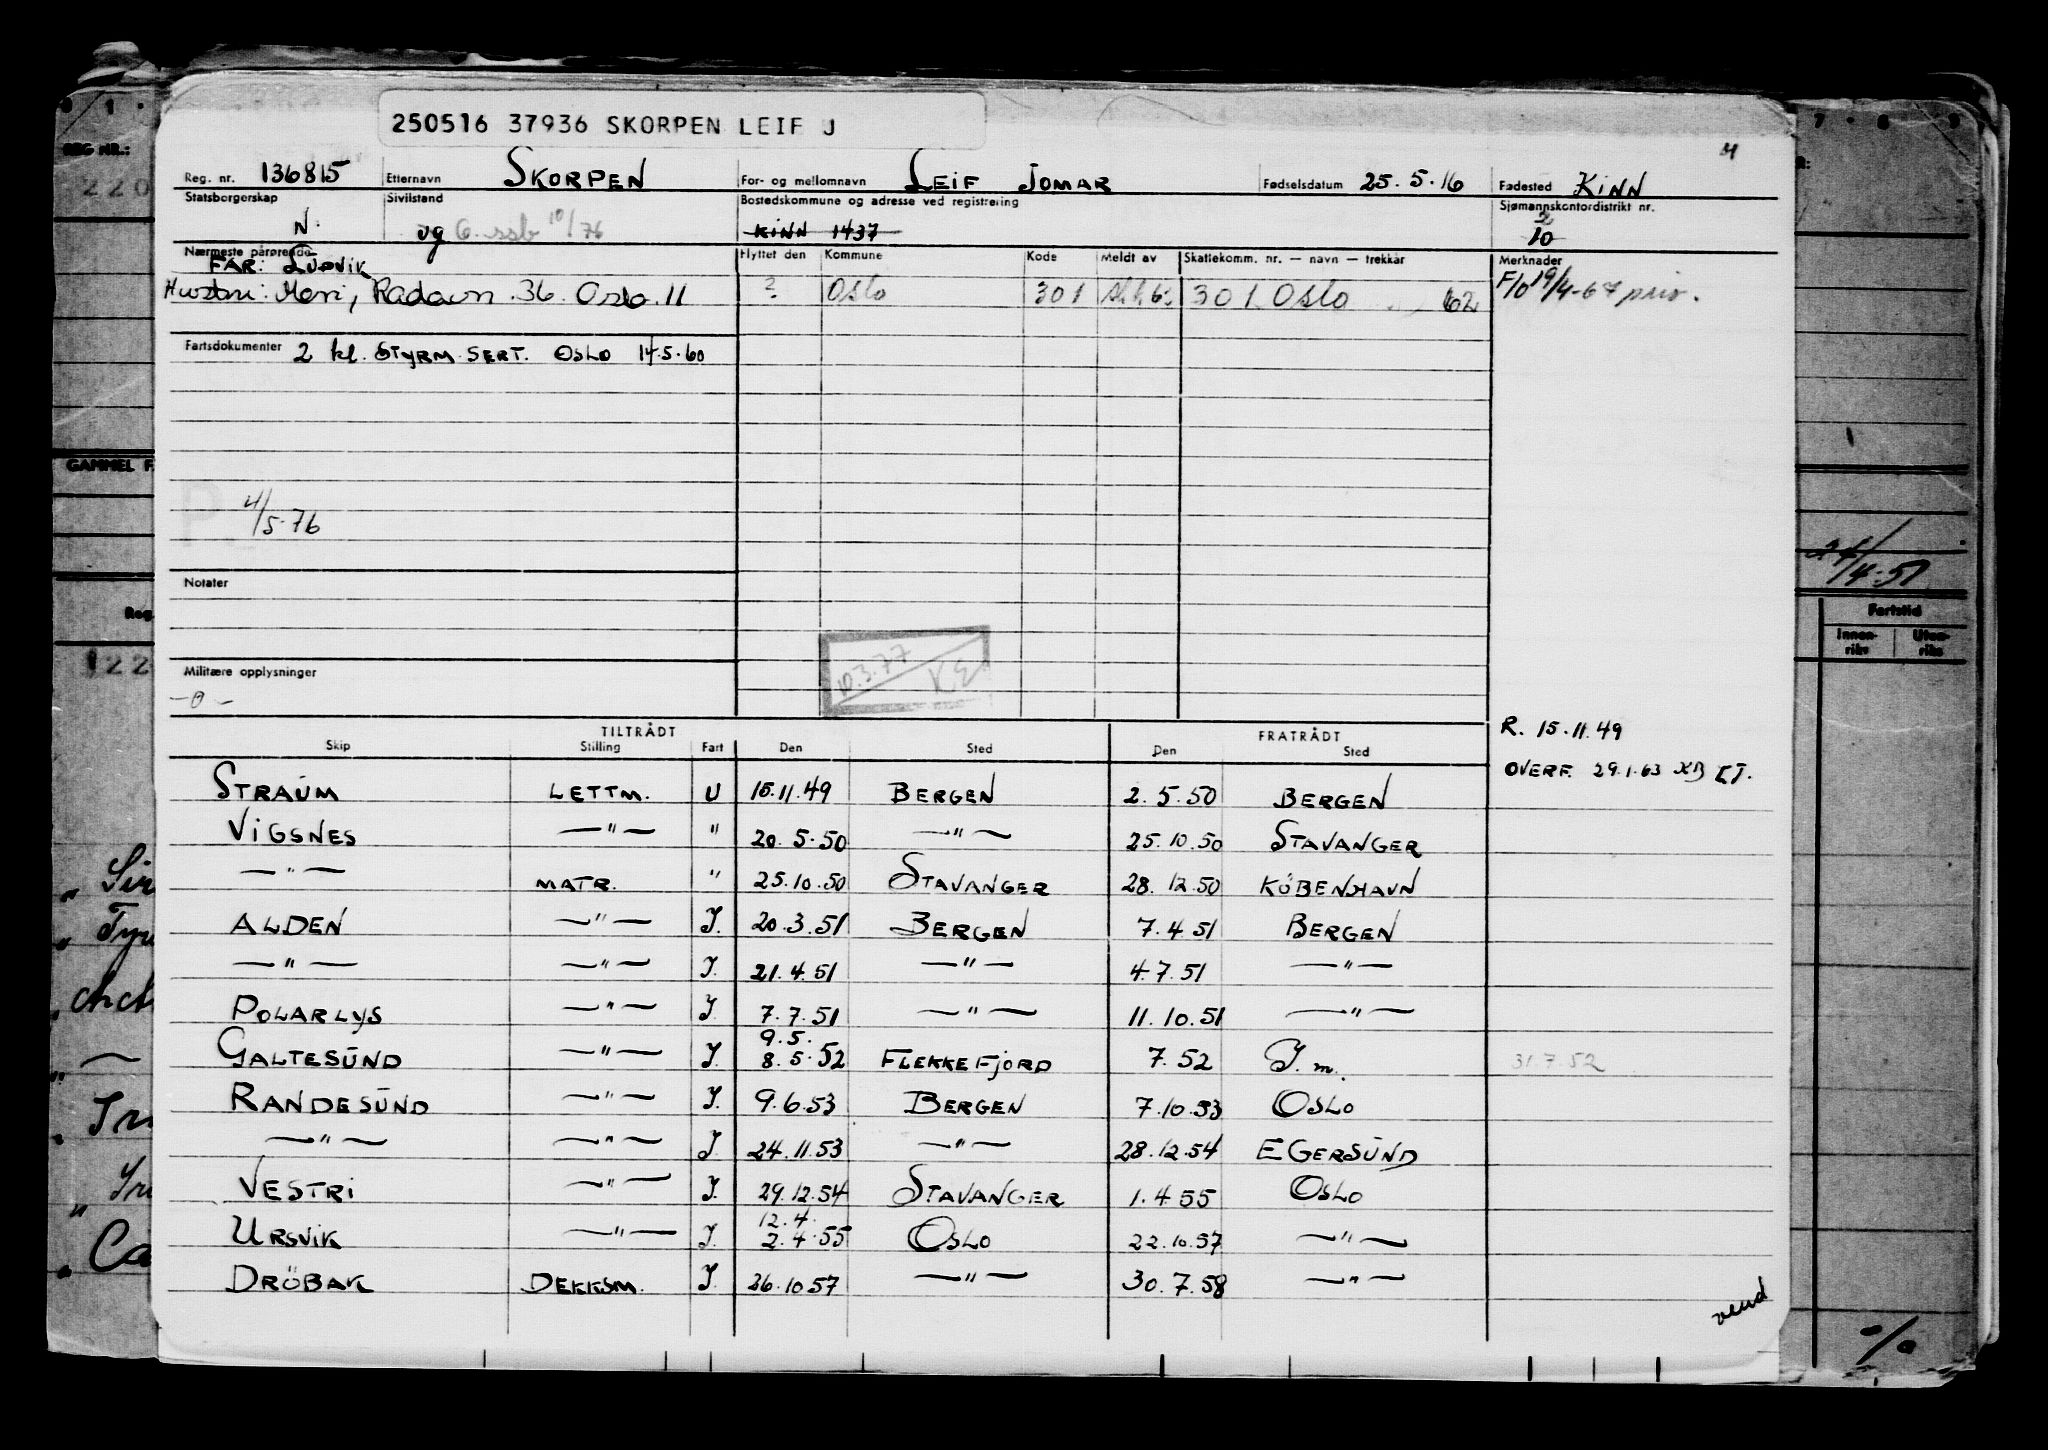 250516 37936 SKORPEN LEIF J
Reg. nr. 136815 Etternavn SKORPEN For- og mellomnavn LEIF JOMAR Fødselsdatum 25.5.16 Fødested KINN
Statsborgerskap N. Sivilstand ug G. ssb 10/76 Bostedskommune og adresse ved registrering KINN 1437 Sjømannskontordistrikt nr. 2 10
Nærmeste pårørende FAR: LUDVIK Flyttet den Kommune Kode Meldt av Skattekomm. nr. — navn — trekkår Merknader
Hustru: Meri, Radavn. 36. Oslo. 11 ? Oslo 301 301 Oslo 62 F/o 19/4-67 priv.
Fartsdokumenter 2 kl. STYRM. SERT. OSLO 14.5.60
P 4/5-76
Notater
10.3.77 KE
Militære opplysninger
—0—
TILTRÅDT FRATRÅDT R. 15.11.49
Skip Stilling Fart Den Sted Den Sted
OVERF. 29.1.63
STRAUM LETTM. U 15.11.49 BERGEN 2.5.50 BERGEN
VIGSNES —"— " 20.5.50 —"— 25.10.50 STAVANGER
—"— MATR. " 25.10.50 STAVANGER 28.12.50 KÖBENHAVN
ALDEN —"— I. 20.3.51 BERGEN 7.4.51 BERGEN
—"— —"— I. 21.4.51 —"— 4.7.51 —"—
POLARLYS —"— I. 7.7.51 —"— 11.10.51 —"—
GALTESUND —"— I. 9.5. 8.5.52 FLEKKEFJORD 7.52 I.m. 31.7.52
RANDESUND —"— I. 9.6.53 BERGEN 7.10.53 OSLO
—"— —"— I. 24.11.53 —"— 28.12.54 EGERSUND
VESTRI —"— I. 29.12.54 STAVANGER 1.4.55 OSLO
URSVIK —"— I. 12.4. 2.4.55 OSLO 22.10.57 —"—
DRÖBAK DEKKSM. I. 26.10.57 —"— 30.7.58 —"—
vend
REG NR.:
220
GAMMEL F
Reg.
122
24/4-51
Fartstid
Innen-riks Uten-riks